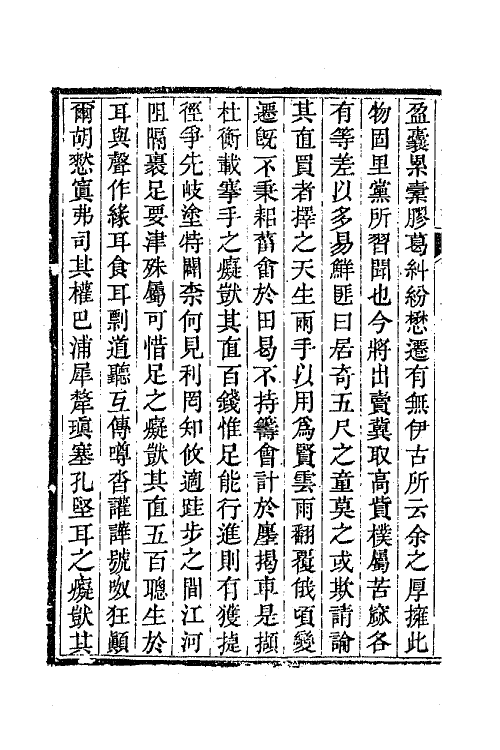 盈囊累橐膠葛糾紛懋遷有無伊古所云余之厚擁此
物固里黨所習聞也今將出賣冀取高貲樸屬苦窳各
有等差以多易鮮匪曰居奇五尺之童莫之或欺請論
其直買者擇之天生兩手以用爲賢雲雨翻覆俄頃變
遷旣不秉耜菑畬於田曷不持籌會計於廛揭車是擷
杜衡載搴手之癡獃其直百錢惟足能行進則有獲捷
徑爭先岐塗特闢柰何見利罔知攸適跬步之間江河
阻隔裹足要津殊屬可惜足之癡獃其直五百聰生於
耳與聲作緣耳食耳剽道聽互傳噂沓讙譁號呶狂顚
爾胡憗窴弗司其權巴浦犀犛瑱塞孔堅耳之癡獃其